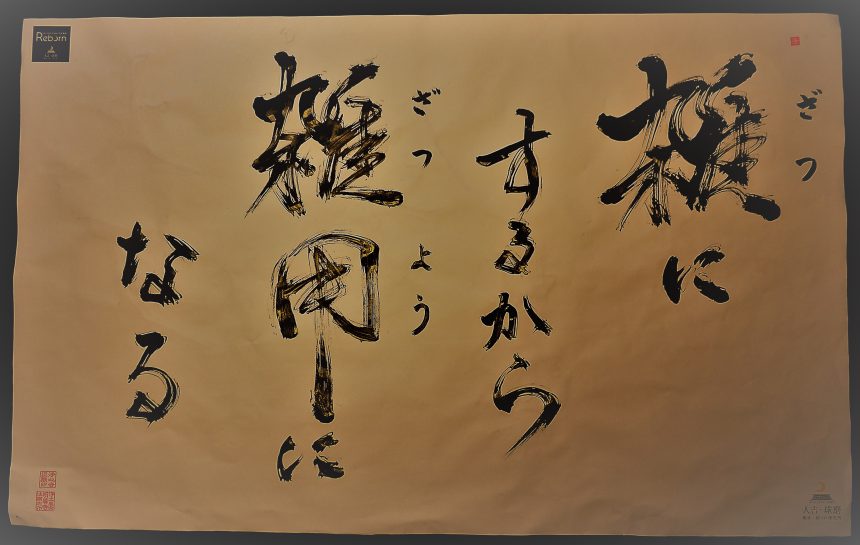 雑に
ざつ
するから
雑用に
ざつよう
なる
Reborn
人吉・球磨